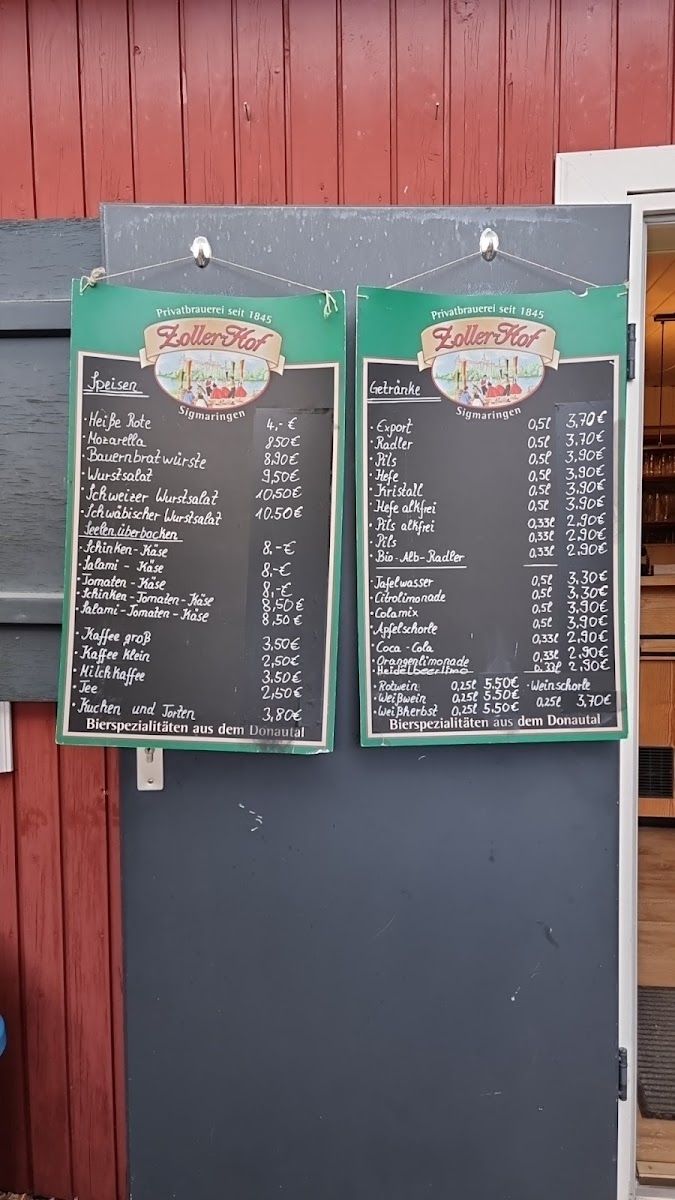 Privatbrauerei seit 1845
Zoller-Hof
Sigmaringen
Speisen
· Heiße Rote 4,- €
· Mozarella 8,50 €
· Bauernbratwürste 8,90 €
· Wurstsalat 9,50 €
· Schweizer Wurstsalat 10,50 €
· Schwäbischer Wurstsalat 10,50 €
Seelen überbacken
· Schinken-Käse 8,- €
· Salami - Käse 8,- €
· Tomaten - Käse 8,- €
· Schinken-Tomaten-Käse 8,50 €
· Salami-Tomaten-Käse 8,50 €
· Kaffee groß 3,50 €
· Kaffee klein 2,50 €
· Milchkaffee 3,50 €
· Tee 2,50 €
· Kuchen und Torten 3,80 €
Bierspezialitäten aus dem Donautal
Privatbrauerei seit 1845
Zoller-Hof
Sigmaringen
Getränke
· Export 0,5l 3,70 €
· Radler 0,5l 3,70 €
· Pils 0,5l 3,90 €
· Hefe 0,5l 3,90 €
· Kristall 0,5l 3,90 €
· Hefe alkfrei 0,5l 3,90 €
· Pils alkfrei 0,33l 2,90 €
· Pils 0,33l 2,90 €
· Bio-Alb-Radler 0,33l 2,90 €
· Tafelwasser 0,5l 3,30 €
· Citrolimonade 0,5l 3,30 €
· Colamix 0,5l 3,90 €
· Apfelschorle 0,5l 3,90 €
· Coca-Cola 0,33l 2,90 €
· Orangenlimonade 0,33l 2,90 €
· Heidelbeerlimo 0,33l 2,90 €
· Rotwein 0,25l 5,50 € · Weinschorle
· Weißwein 0,25l 5,50 € 0,25l 3,70 €
· Weißherbst 0,25l 5,50 €
Bierspezialitäten aus dem Donautal